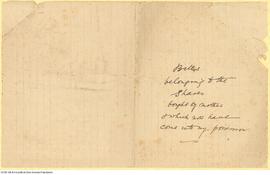 Bills
belonging to the
Shares
bought of mother
& which now have
come into my possession